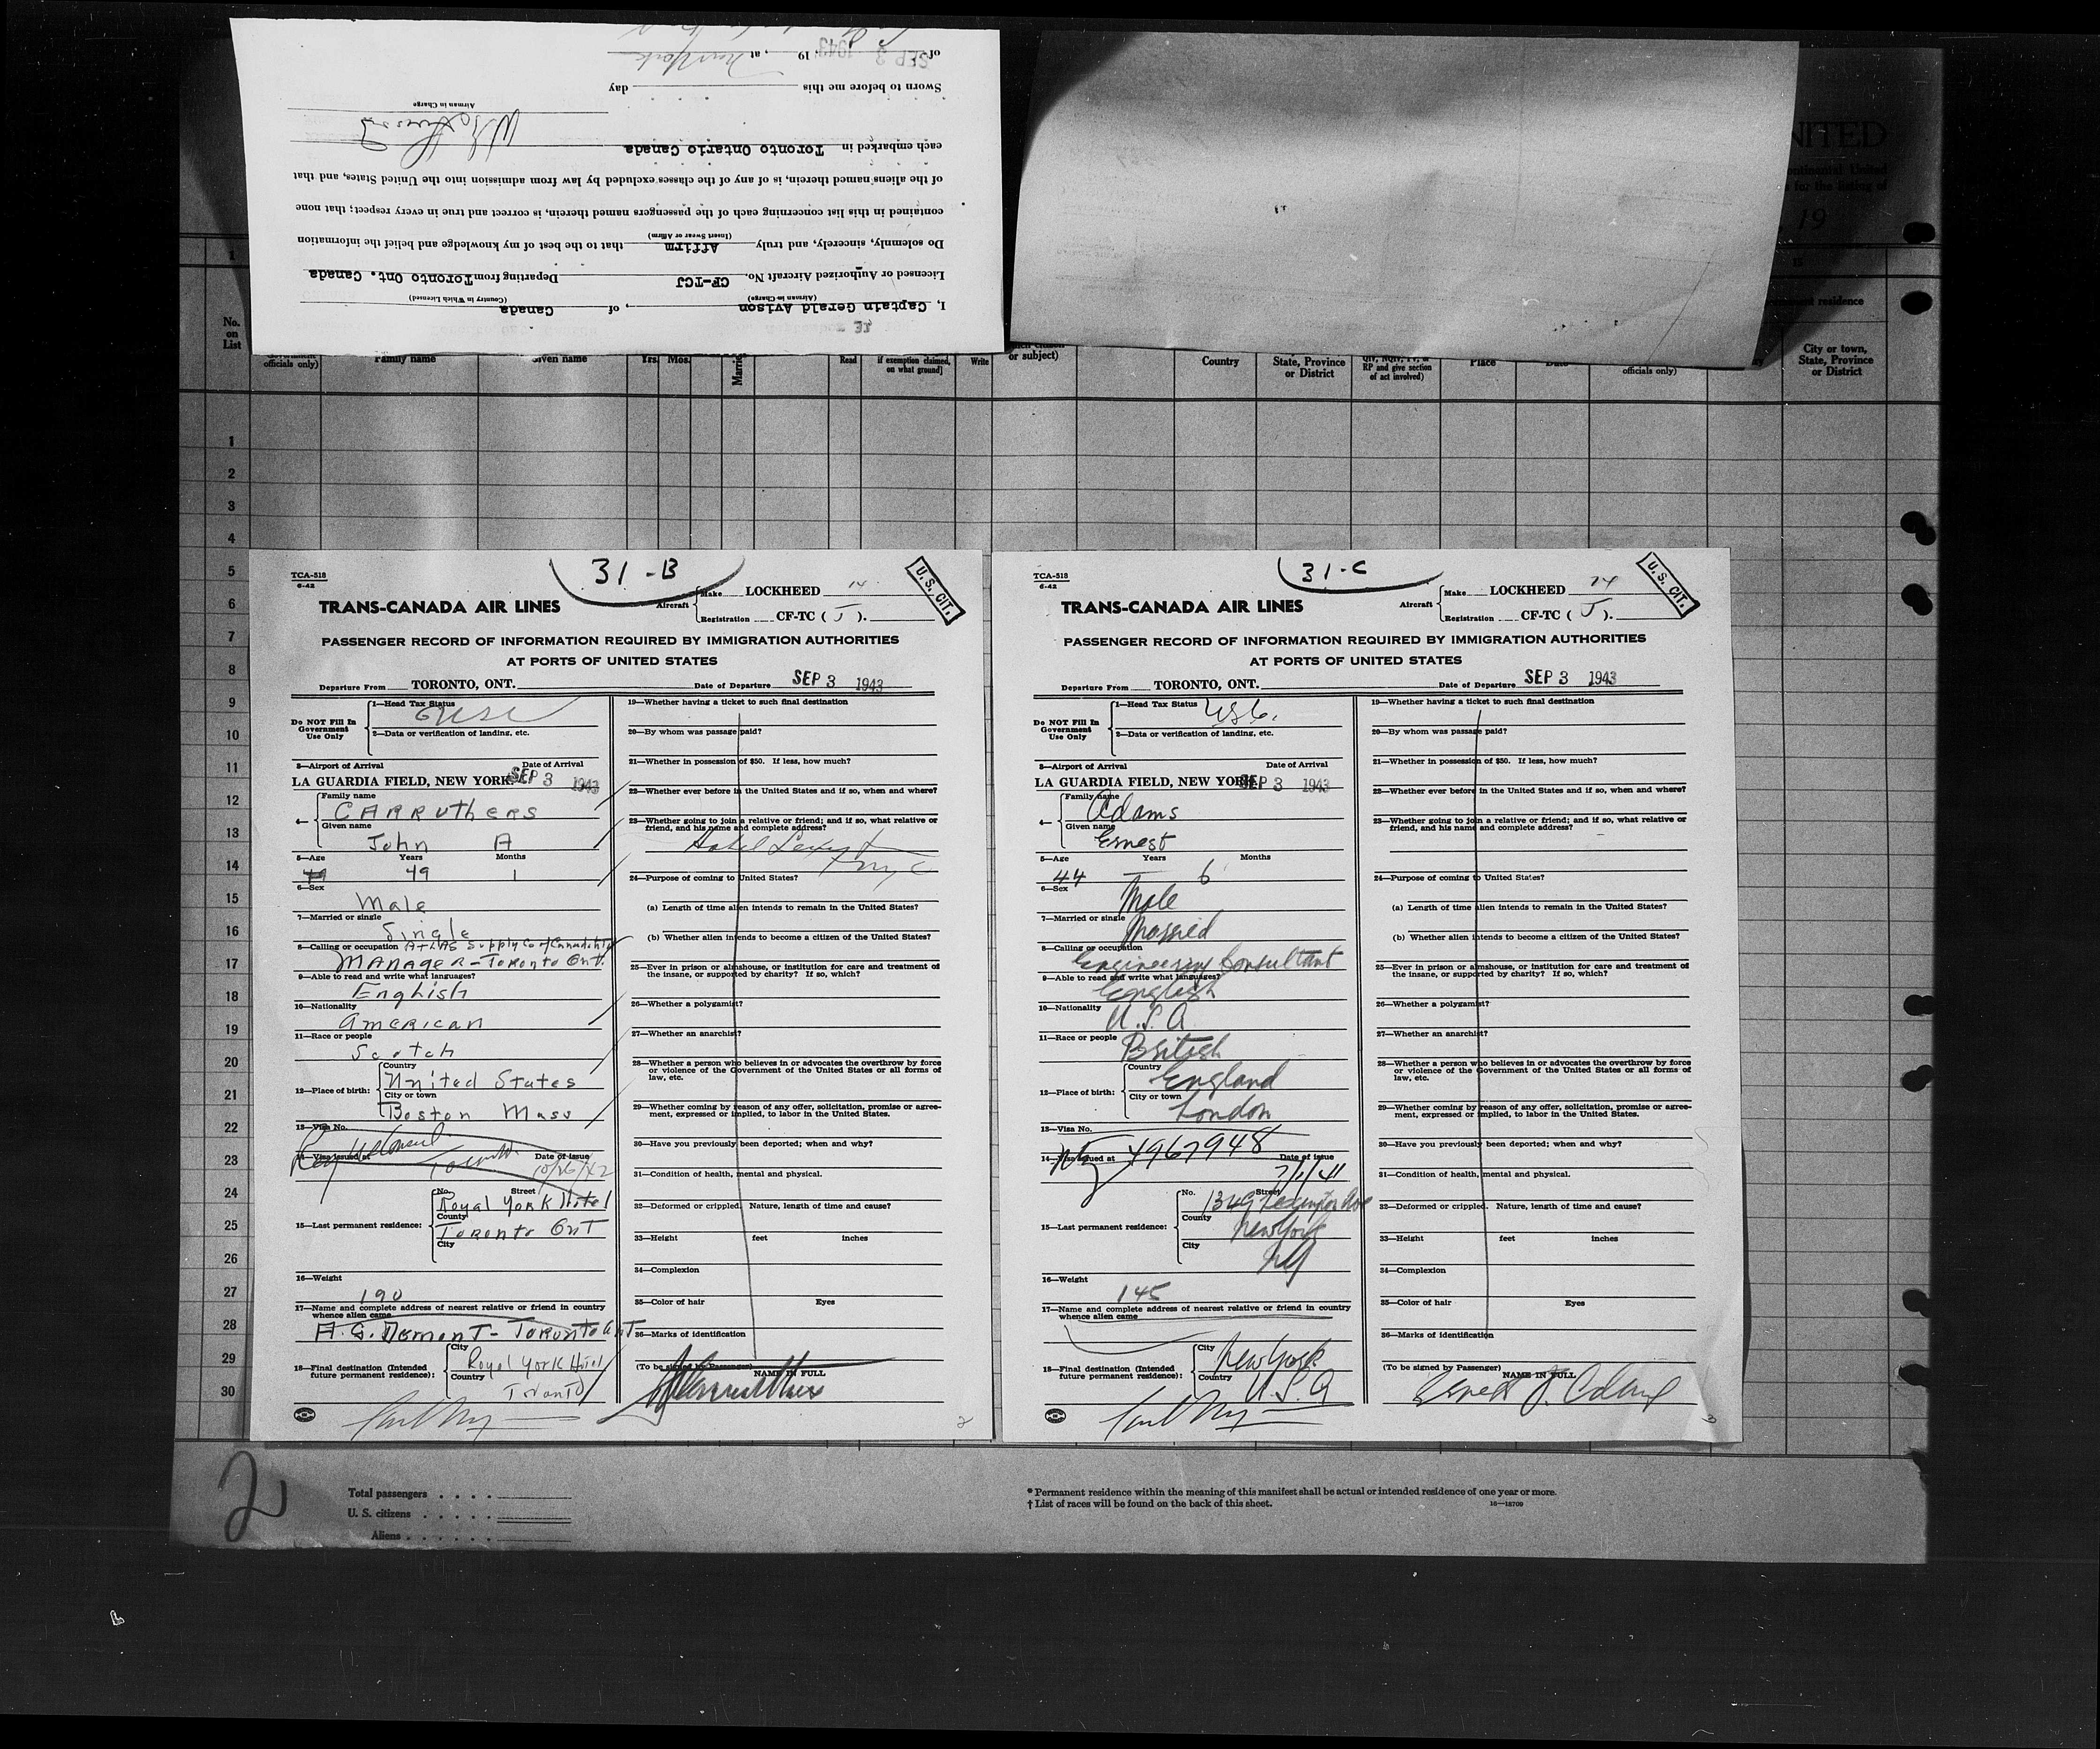 I, Captain Gerald Avison, of Canada
(Airman in Charge) (Country in Which Licensed)
Licensed or Authorized Aircraft No. CF-TCJ Departing from Toronto Ont. Canada
Do solemnly, sincerely, and truly Affirm that to the best of my knowledge and belief the information
(Insert Swear or Affirm)
contained in this list concerning each of the passengers named therein, is correct and true in every respect; that none
of the aliens named therein, is of any of the classes excluded by law from admission into the United States, and that
each embarked in Toronto Ontario Canada
Airman in Charge
Sworn to before me this day
of SEP 3 1943, 19 , at New York
NITED
ontinental United
for the listing of
19
1
15
residence
No.
on
List
officials only)
Family name
Given name
Yrs.
Mos.
Read
if exemption claimed,
on what ground)
Write
or subject)
Country
State, Province
or District
RP and give section
of act involved)
Place
Date
officials only)
City or town,
State, Province
or District
1
2
3
4
5
6
7
8
9
10
11
12
13
14
15
16
17
18
19
20
21
22
23
24
25
26
27
28
29
30
TCA-518
6-42
31-B
U. S. CIT.
TRANS-CANADA AIR LINES
Aircraft
Make LOCKHEED 14
Registration CF-TC ( J ).
PASSENGER RECORD OF INFORMATION REQUIRED BY IMMIGRATION AUTHORITIES
AT PORTS OF UNITED STATES
Departure From TORONTO, ONT. Date of Departure SEP 3 1943
Do NOT Fill In
Government
Use Only
1—Head Tax Status
2—Data or verification of landing, etc.
3—Airport of Arrival Date of Arrival
LA GUARDIA FIELD, NEW YORK SEP 3 1943
4— Family name
CARRUTHERS
Given name
John A
5—Age Years Months
49 1
6—Sex
Male
7—Married or single
Single
8—Calling or occupation ATLAS Supply Co of Canada Ltd
MANAGER - Toronto Ont.
9—Able to read and write what languages?
English
10—Nationality
American
11—Race or people
Scotch
12—Place of birth: Country
United States
City or town
Boston Mass
13—Visa No.
14—Visa issued at Date of issue
Toronto 10/26/42
15—Last permanent residence: No. Street
Royal York Hotel
County
Toronto Ont
City
16—Weight
190
17—Name and complete address of nearest relative or friend in country
whence alien came
A. G. Demont - Toronto Ont
18—Final destination (Intended
future permanent residence): City
Royal York Hotel
Country
Toronto
19—Whether having a ticket to such final destination
20—By whom was passage paid?
21—Whether in possession of $50. If less, how much?
22—Whether ever before in the United States and if so, when and where?
23—Whether going to join a relative or friend; and if so, what relative or
friend, and his name and complete address?
Hotel
NYC
24—Purpose of coming to United States?
(a) Length of time alien intends to remain in the United States?
(b) Whether alien intends to become a citizen of the United States?
25—Ever in prison or almshouse, or institution for care and treatment of
the insane, or supported by charity? If so, which?
26—Whether a polygamist?
27—Whether an anarchist?
28—Whether a person who believes in or advocates the overthrow by force
or violence of the Government of the United States or all forms of
law, etc.
29—Whether coming by reason of any offer, solicitation, promise or agree-
ment, expressed or implied, to labor in the United States.
30—Have you previously been deported; when and why?
31—Condition of health, mental and physical.
32—Deformed or crippled. Nature, length of time and cause?
33—Height feet inches
34—Complexion
35—Color of hair Eyes
36—Marks of identification
(To be signed by Passenger)
NAME IN FULL
2
TCA-518
6-42
31-C
U. S. CIT.
TRANS-CANADA AIR LINES
Aircraft
Make LOCKHEED 14
Registration CF-TC ( J ).
PASSENGER RECORD OF INFORMATION REQUIRED BY IMMIGRATION AUTHORITIES
AT PORTS OF UNITED STATES
Departure From TORONTO, ONT. Date of Departure SEP 3 1943
Do NOT Fill In
Government
Use Only
1—Head Tax Status
2—Data or verification of landing, etc.
3—Airport of Arrival Date of Arrival
LA GUARDIA FIELD, NEW YORK SEP 3 1943
4— Family name
Adams
Given name
Ernest
5—Age Years Months
44 6
6—Sex
Male
7—Married or single
Married
8—Calling or occupation
Engineering Consultant
9—Able to read and write what languages?
English
10—Nationality
U.S.A
11—Race or people
British
12—Place of birth: Country
England
City or town
London
13—Visa No.
4967948
14—Visa issued at Date of issue
7/1/41
15—Last permanent residence: No. Street
1349 Lexington Ave
County
New York
City
NY
16—Weight
145
17—Name and complete address of nearest relative or friend in country
whence alien came
18—Final destination (Intended
future permanent residence): City
New York
Country
U.S.A
19—Whether having a ticket to such final destination
20—By whom was passage paid?
21—Whether in possession of $50. If less, how much?
22—Whether ever before in the United States and if so, when and where?
23—Whether going to join a relative or friend; and if so, what relative or
friend, and his name and complete address?
24—Purpose of coming to United States?
(a) Length of time alien intends to remain in the United States?
(b) Whether alien intends to become a citizen of the United States?
25—Ever in prison or almshouse, or institution for care and treatment of
the insane, or supported by charity? If so, which?
26—Whether a polygamist?
27—Whether an anarchist?
28—Whether a person who believes in or advocates the overthrow by force
or violence of the Government of the United States or all forms of
law, etc.
29—Whether coming by reason of any offer, solicitation, promise or agree-
ment, expressed or implied, to labor in the United States.
30—Have you previously been deported; when and why?
31—Condition of health, mental and physical.
32—Deformed or crippled. Nature, length of time and cause?
33—Height feet inches
34—Complexion
35—Color of hair Eyes
36—Marks of identification
(To be signed by Passenger)
NAME IN FULL
Ernest J. Adams
3
2
Total passengers
U. S. citizens
Aliens
* Permanent residence within the meaning of this manifest shall be actual or intended residence of one year or more.
† List of races will be found on the back of this sheet. 16—18709